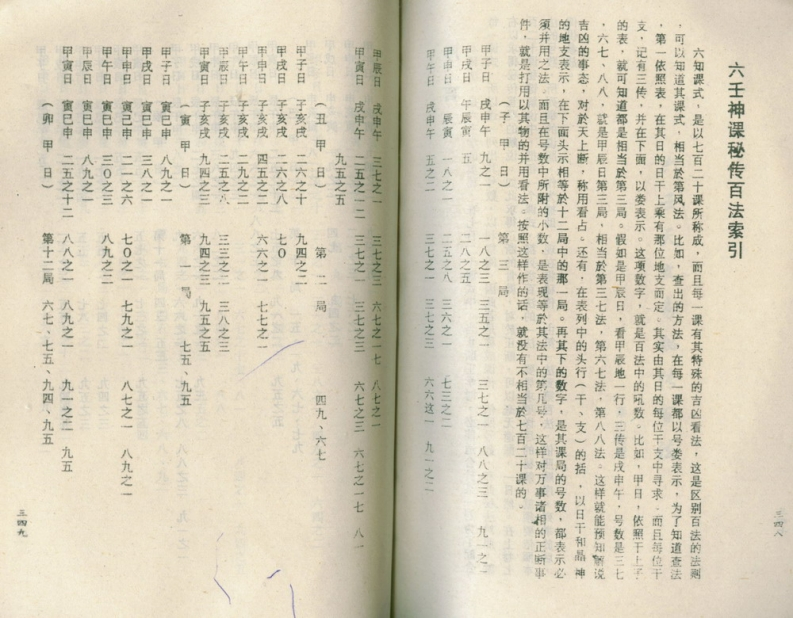 六壬神课秘传百法索引
六知课式，是以七百二十课所称成，而且每一课有其特殊的吉凶看法，这是区别百法的法则
，可以知道其课式，相当於第风法。比如，查出的方法，在每一课都以号娄表示，为了知道查法
，第一依照表，在其日的日干上乘有那位地支而定。其实由其日的每位干支中寻求。而且每位干
支，记有三传，并在下面，以娄表示。这项数字，就是百法中的吼数。比如，甲日，依照于上子
的表，就可知道都是相当於第三局。假如是甲辰日，看甲辰地一行，三传是戌申午，号数是三七
、六七、八八，就是甲辰日第三局，相当於第三七法，第六七法，第八八法。这样就能预知解说
吉凶的事态，对於天上断，称用看占。还有，在表列中的头行（干、支）的括，以日干和晶神
的地支表示，在下面头示相等於十二局中的那一局。再其下的数字，是其课局的号数，都表示必
须并用之法。而且在号数中所附的小数，是表现等於其法中的第几号，这样对万事诸相的正断事
件，就是打用以其物的并用看法。按照这样作的话，就没有不相当於七百二十课的。
（子 甲 日） 第 三 局
甲子日 戌申午 九之一 一八之三 三五之一 三七之一 八八之三 九一之一
甲戌日 午辰寅 五 二八之五
甲申日 午辰寅 一八之一 二五之八 三六之一 七三之二
甲午日 戌申午 五之二 三七之一 三七之三 六六这一 九一之二
三四八
甲辰日 戌申午 三七之一 三七之三 六七之一七 八七之一
甲寅日 戌申午 二五之一二 三七之一 三七之三 六七之三 六七之一七 八一
九五之五
（丑 甲 日） 第 二 局 四九、六七
甲子日 子亥戌 二六之十 九四之二
甲戌日 子亥戌 二六之八 七〇
甲申日 子亥戌 四五之二 六六之一 七七之一
甲午日 子亥戌 二九之二
甲辰日 子亥戌 二五之八 三三之二 三八之三
甲寅日 子亥戌 九四之三 九四之三 九五之五
（寅 甲 日） 第 一 局 七五、九五
甲子日 寅巳申 八九之一
甲戌日 寅巳申 三八之一
甲申日 寅巳申 二一之六 七〇之一 七九之一 八七之一 八九之一
甲午日 寅巳申 三〇之三 八九之二
甲辰日 寅巳申 八九之一
甲寅日 寅巳申 二五之十二 八八之一 八九之一 九一之二 九五
（卯 甲 日） 第十二局 六七、七五、九四、九五
三四九